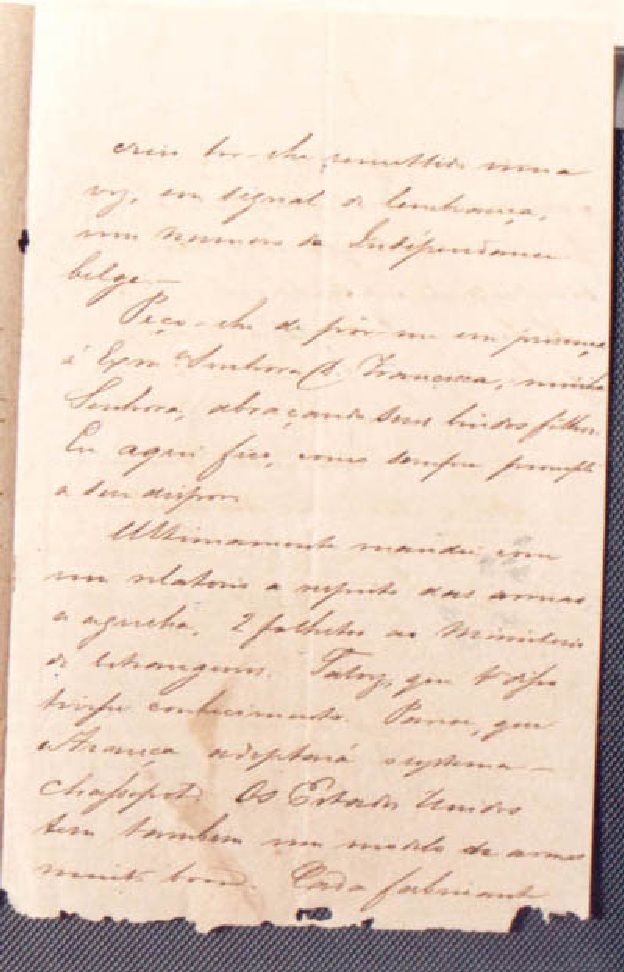 creio ter-lhe remettido uma
vez, em signal de lembrança,
um numero da Indépendance
belge.—
Peço-lhe de pôr-me em presença
á Exma Senhora D. Francisca, minha
Senhora, abraçando seus lindos filhos.
Eu aqui fico, como sempre prompto
a seu dispor.
Ultimamente mandei com
um relatorio a respeito das armas
a agulha, 2 folhetos ao Ministerio
de Estrangeiros. Talvez, que
tivesse conhecimento. Parece, que
França adoptará systema—
Chassepot. Os Estados Unidos
tem tambem um modelo de armas
muito bom. Cada fabricante